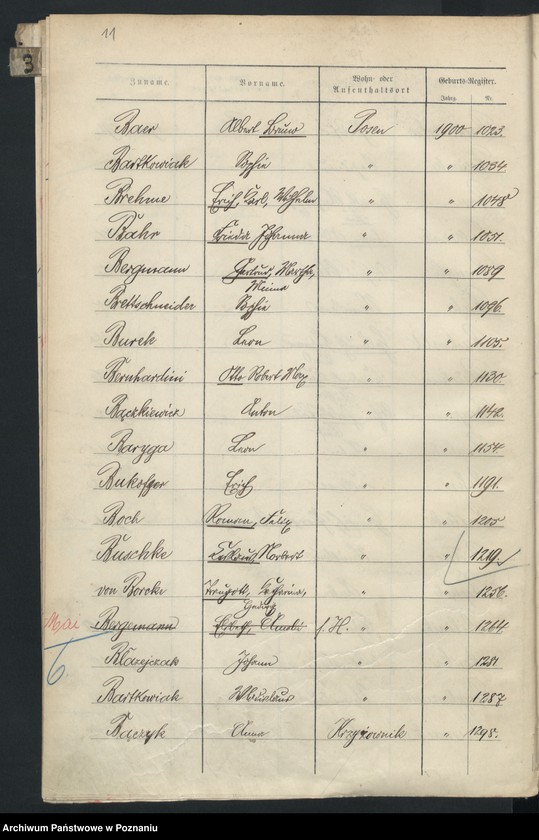 11
3
Zuname. Vorname. Wohn- oder Aufenthaltsort Geburts-Register.
Jahrg. Nr.
Baer Albert Bruno Posen 1900 1023.
Bartkowiak Sophie " " 1034
Brehme Erich, Karl, Wilhelm " " 1048
Bahr Frieda Johanna " " 1051.
Bergmann Gertrud, Martha, " " 1089
Minna
Brettschneider Sophie " " 1096.
Burek Leon " " 1105.
Bernhardini Otto Robert Max " " 1130.
Bączkiewicz Anton " " 1142.
Baryga Leon " " 1154.
Bukofzer Erich " " 1191.
Boch Roman, Felix " " 1205
Buschke Norbert " " 1219.
von Borcke Katharina, " " 1256.
Mai Bergemann f. H. " 1264.
6
Błażejczak Johann " " 1281
Bartkowiak " " 1287
Bączyk Anna Krzyżownik " 1298.
Archiwum Państwowe w Poznaniu